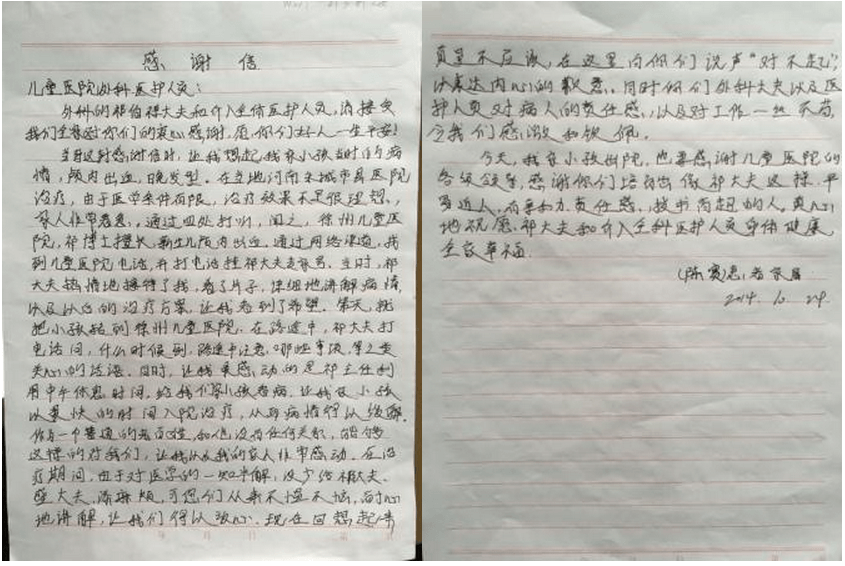 感谢信
儿童医院外科医护人员:
外科的祁伯祥大夫和介入全体医护人员,请接受
我们全家对你们的衷心感谢,愿你们好人一生平安!
当写这封感谢信时,让我想起我家小孩当时的病
情,颅内出血,晚发型。在当地河南永城市县医院
治疗,由于医学条件有限,治疗效果不是很理想,
家人非常着急。通过四处打听,闻之,徐州儿童医
院,祁博士擅长,新生儿颅内出血。通过网络渠道,找
到儿童医院电话,并打电话挂祁大夫专家号。当时,祁
大夫热情地接待了我,看了片子,详细地讲解病情
以及以后的治疗方案,让我看到了希望。第天,就
把小孩转到徐州儿童医院。在路途中,祁大夫打
电话问,什么时候到,路途中注意哪些事项,等之类
关心的话语。同时,让我更感动的是祁主任利
用中午休息时间,给我们家小孩看病,让我家小孩
以最快的时间入院治疗,从而病情得以缓解。
作为一个普通的老百姓,和他没有任何关系,能够
这样的对我们,让我以及我的家人非常感动。在治
疗期间,由于对医学的一知半解,没少给祁大夫、
大夫添麻烦,可您们从来不慢不怒,耐心
地讲解,让我们得以放心。现在回想起来
真是不应该,在这里向你们说声“对不起”,
以表达内心的歉意。同时你们外科大夫以及医
护人员对病人的责任感,以及对工作一丝不苟,
令我们感激和钦佩。
今天,我家小孩出院,也要感谢儿童医院的
各级领导,感谢你们培育出像祁大夫这样,平
易近人,有亲和力责任感,救死的人。真心
地祝愿,祁大夫和介入全科医护人员身体健康,
全家幸福。
(陈赛)患者家属
2014.10.29.